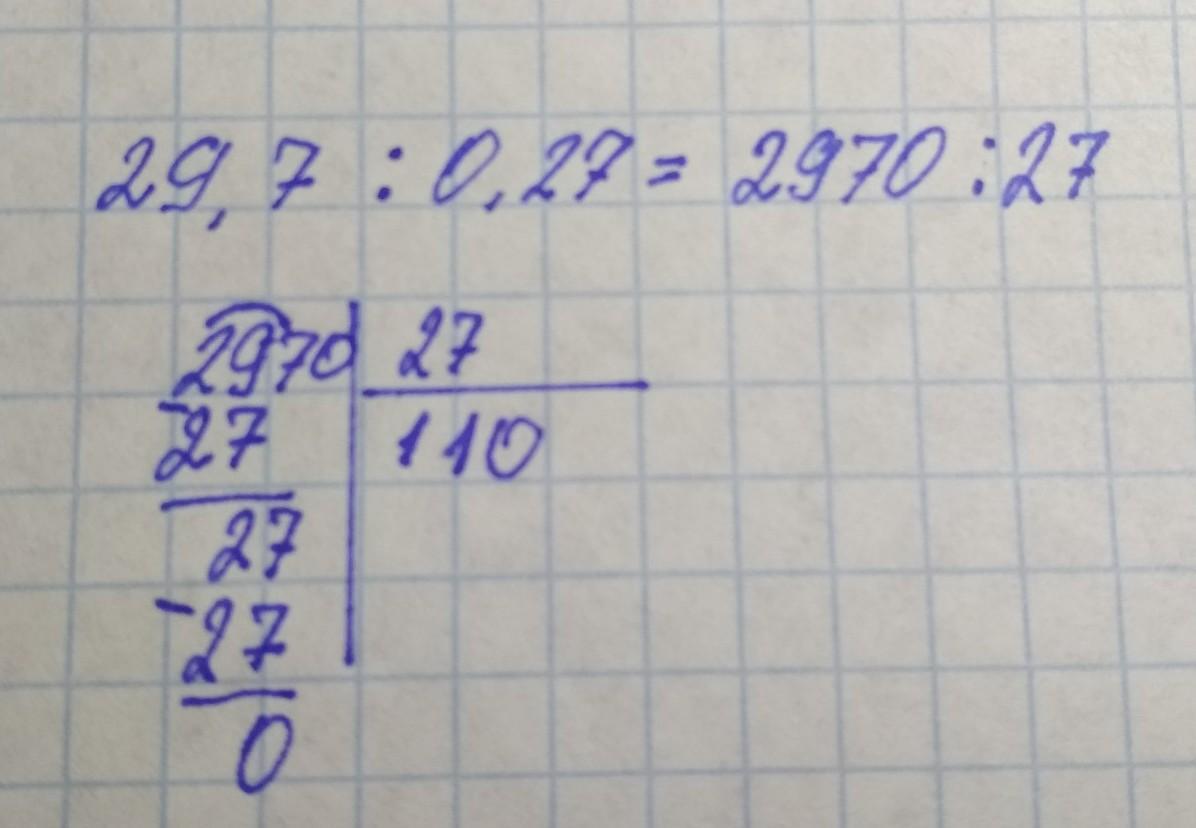 29,7 : 0,27 = 2970 : 27
2970 27
-27 110
27
-27
0